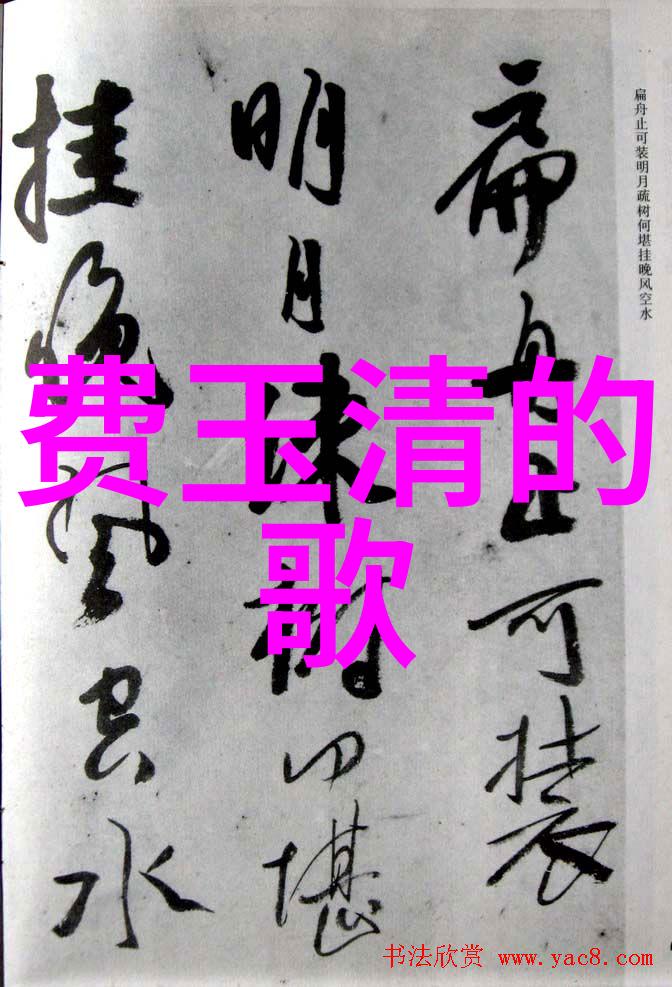 扁舟止可装
明月疏树何堪
挂晚风空水
扁舟止可装明月疏树何堪挂晚风空水
费玉清的
歌
书法欣赏 www.yac8.com